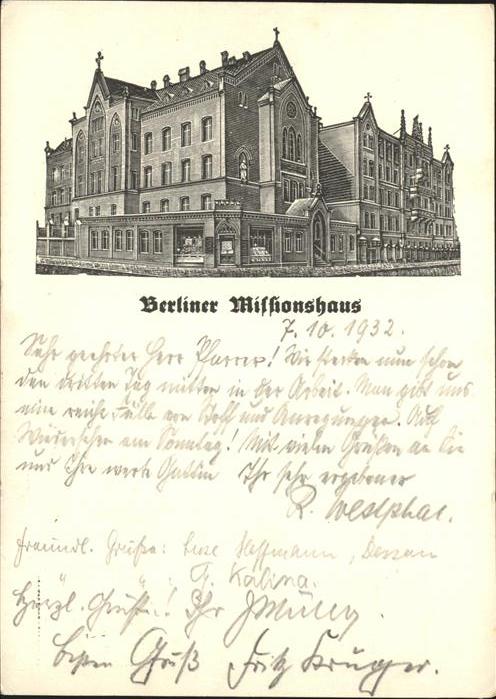 Berliner Missionshaus
7.10.1932.
Sehr geehrter Herr Pfarrer! Wir stecken nun schon
den dritten Tag mitten in der Arbeit. Man gibt uns
eine reiche Fülle von Stoff und Anregungen. Auf
Wiedersehen am Sonntag! Mit vielen Grüßen an Sie
und Ihre werte Gattin Ihr sehr ergebener
R. Westphal.
Freundl. Grüße: Hoffmann, Dessau
" " Kalina.
Herzl. Grüße! Ihr
besten Gruß Fritz Krüger.